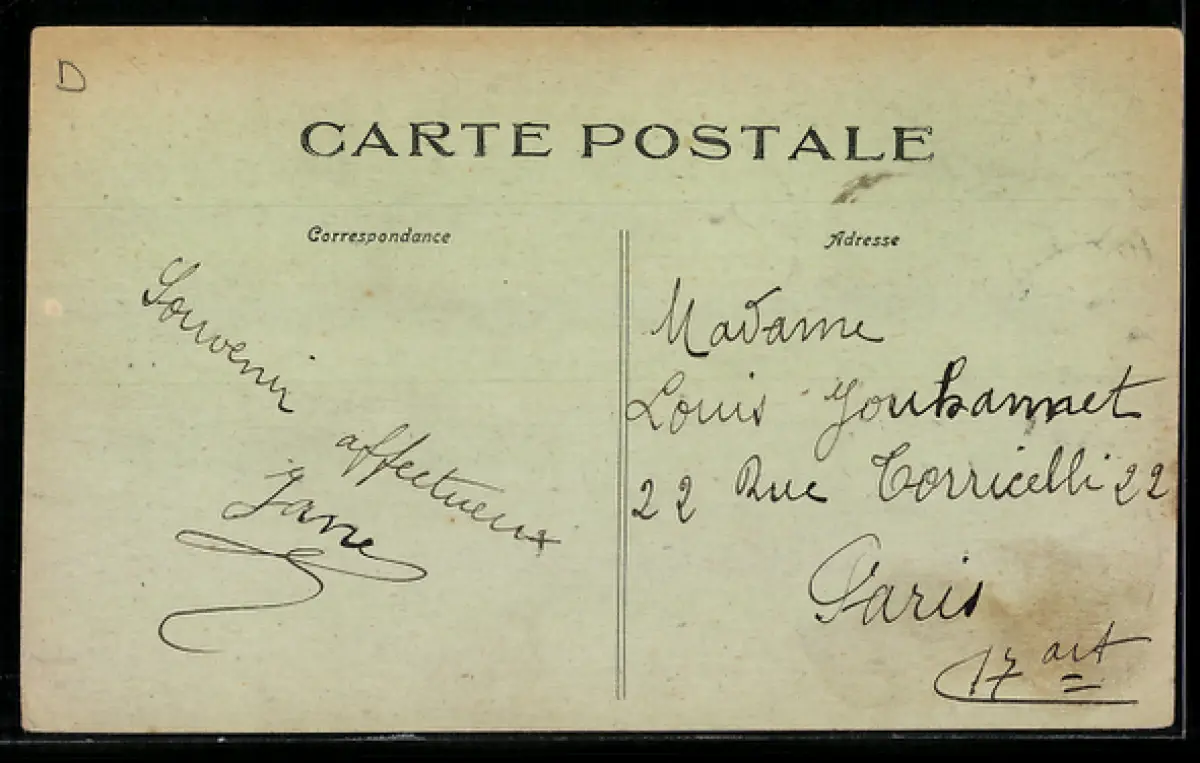 D
CARTE POSTALE
Correspondance
Souvenir
affectueux
Jane
Adresse
Madame
Louis Jouhannet
22 Rue Torricelli 22
Paris
17 art